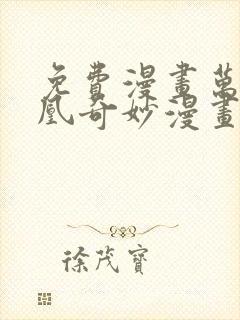 免費漫畫萬
凰奇妙漫畫
徐茂寶